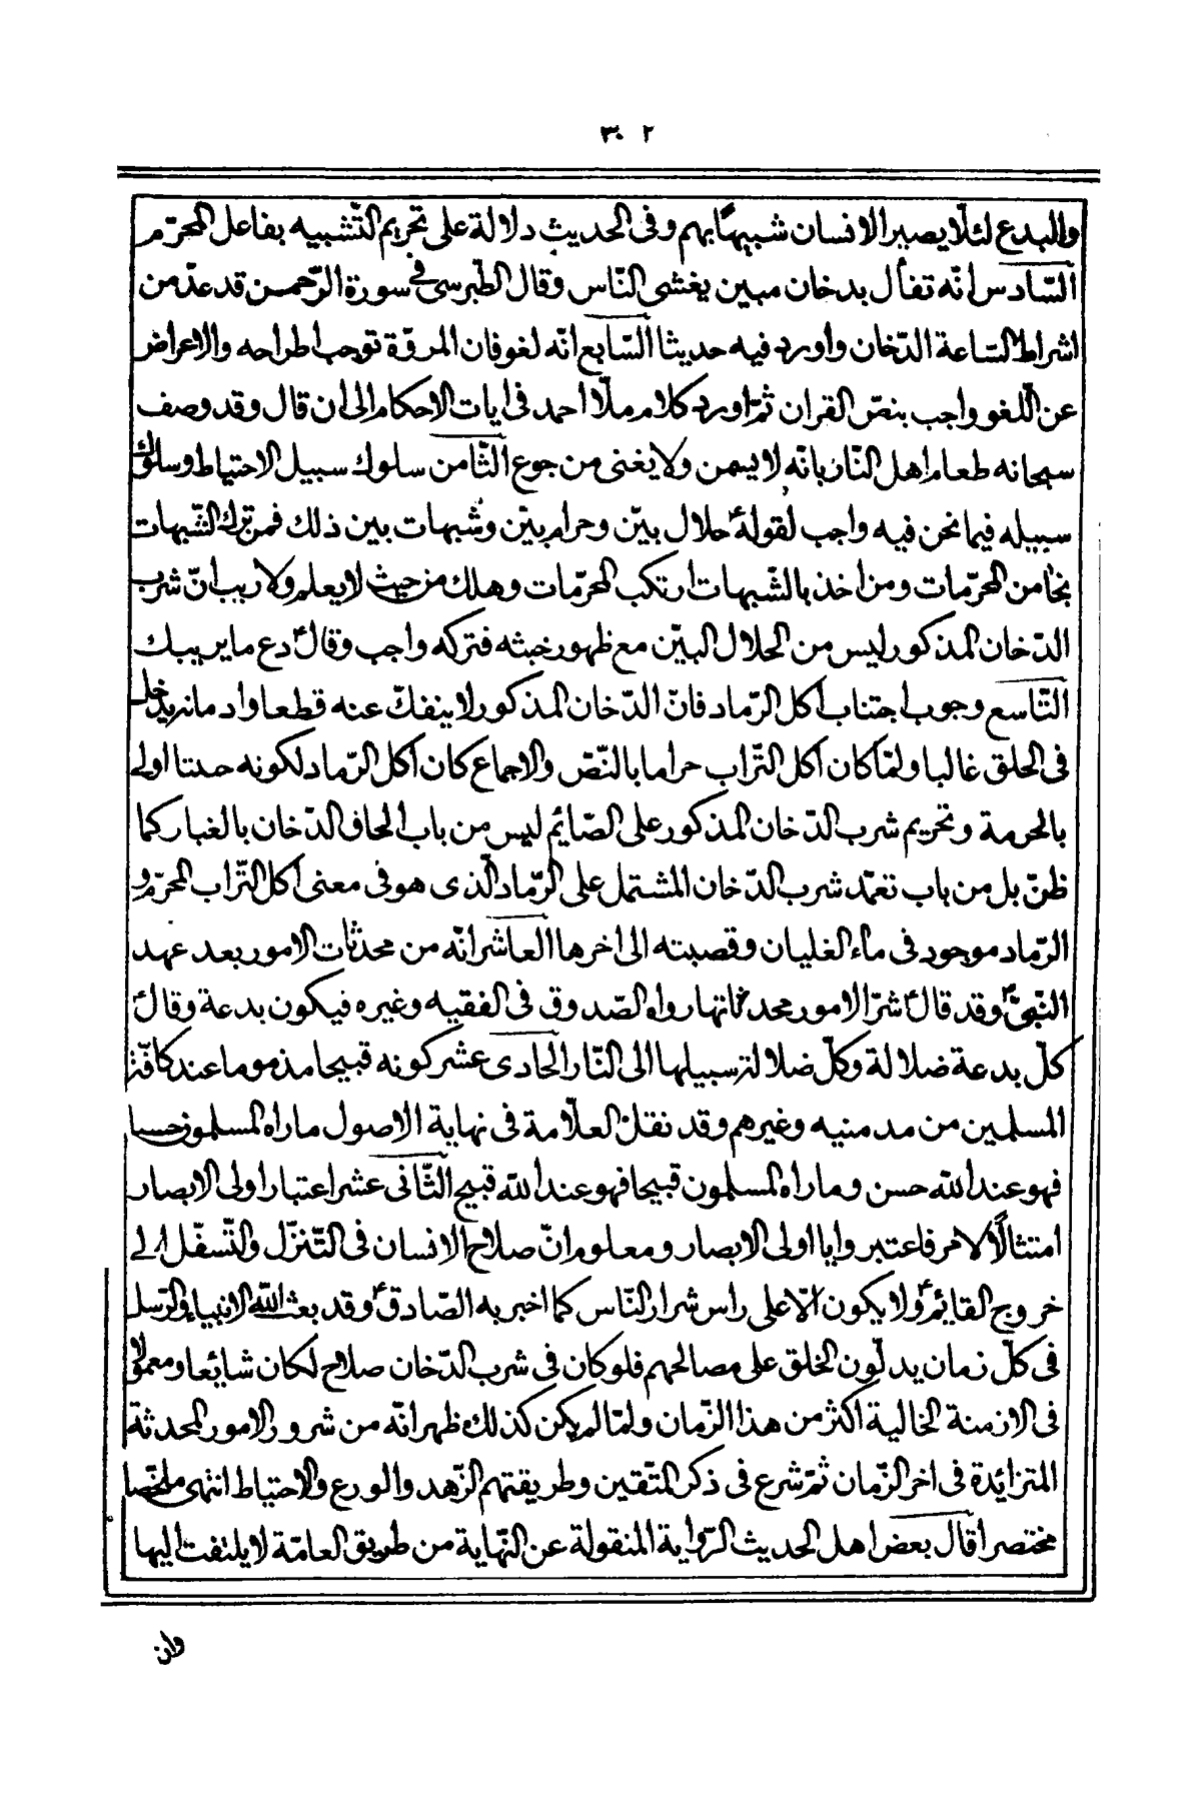 ٣٠٢
والبدع لئلّا يصير الانسان شبيهًا بهم وفى الحديث دلالة على تحريم التّشبيه بفاعل المحرّم
السّادس انّه تفأل بدخان مبين يغشى النّاس وقال الطّبرسى فى سورة الرّحمن قد عدّ من
اشراط السّاعة الدّخان واورد فيه حديثا السّابع انّه لغو فان المروّة توجب اطراحه والاعراض
عن اللّغو واجب بنصّ القران ثمّ اورد كلام ملّا احمد فى ايات الاحكام الى ان قال وقد وصف
سبحانه طعام اهل النّار بانّه لا يسمن ولا يغنى من جوع الثّامن سلوك سبيل الاحتياط وسلوك
سبيله فيما نحن فيه واجب لقولهؐ حلال بيّن وحرام بيّن وشبهات بين ذلك فمن ترك الشّبهات
نجا من المحرّمات ومن اخذ بالشّبهات ارتكب المحرّمات وهلك من حيث لا يعلم ولا ريب انّ شرب
الدّخان المذكور ليس من الحلال البيّن مع ظهور خبثه فتركه واجب وقالؑ دع ما يريبك
التّاسع وجوب اجتناب اكل الرّماد فانّ الدّخان المذكور لا ينفكّ عنه قطعا وادمانه يدخل
فى الحلق غالبا ولمّا كان اكل التّراب حراما بالنّصّ والاجماع كان اكل الرّماد لكونه اولى
بالحرمة وتحريم شرب الدّخان المذكور على الصّائم ليس من باب الحاق الدّخان بالغبار كما
ظنّ بل من باب تعمّد شرب الدّخان المشتمل على الرّماد الّذى هو فى معنى اكل التّراب المحرّم و
الرّماد موجود فى ماء الغليان وقصبته الى اخرها العاشر انّه من محدثات الامور بعد عهد
النّبىؐ وقد قالؑ شرّ الامور محدثاتها رواه الصّدوق فى الفقيه وغيره فيكون بدعة وقالؑ
كلّ بدعة ضلالة وكلّ ضلالة سبيلها الى النّار الحادى عشر كونه قبيحا مذموما عند كافّة
المسلمين من مدمنيه وغيرهم وقد نقل العلّامة فى نهاية الاصول ما راه المسلمون حسنا
فهو عند الله حسن وما راه المسلمون قبيحا فهو عند اللّه قبيح الثّانى عشر اعتبار اولى الابصار
امتثالًا لامر فاعتبروا يا اولى الابصار ومعلوم انّ صلاح الانسان فى التّنزّل والتّسفّل الى
خروج القائمؑ ولا يكون الّا على راس شرار النّاس كما اخبر به الصّادقؑ وقد بعث اللّه الانبياء والرّسل
فى كلّ زمان يدلّون الخلق على مصالحهم فلو كان فى شرب الدّخان صلاح لكان شائعا ومعمولا
فى الازمنة الخالية اكثر من هذا الزّمان ولمّا لم يكن كذلك ظهر انّه من شرور الامور المحدثة
المتزايدة فى اخر الزّمان ثمّ شرع فى ذكر المتّقين وطريقتهم الزّهد والورع والاحتياط انتهى ملخّصا
مختصرا قال بعض اهل الحديث الرّواية المنقولة عن النّهاية من طريق العامّة لا يلتفت اليها
وان